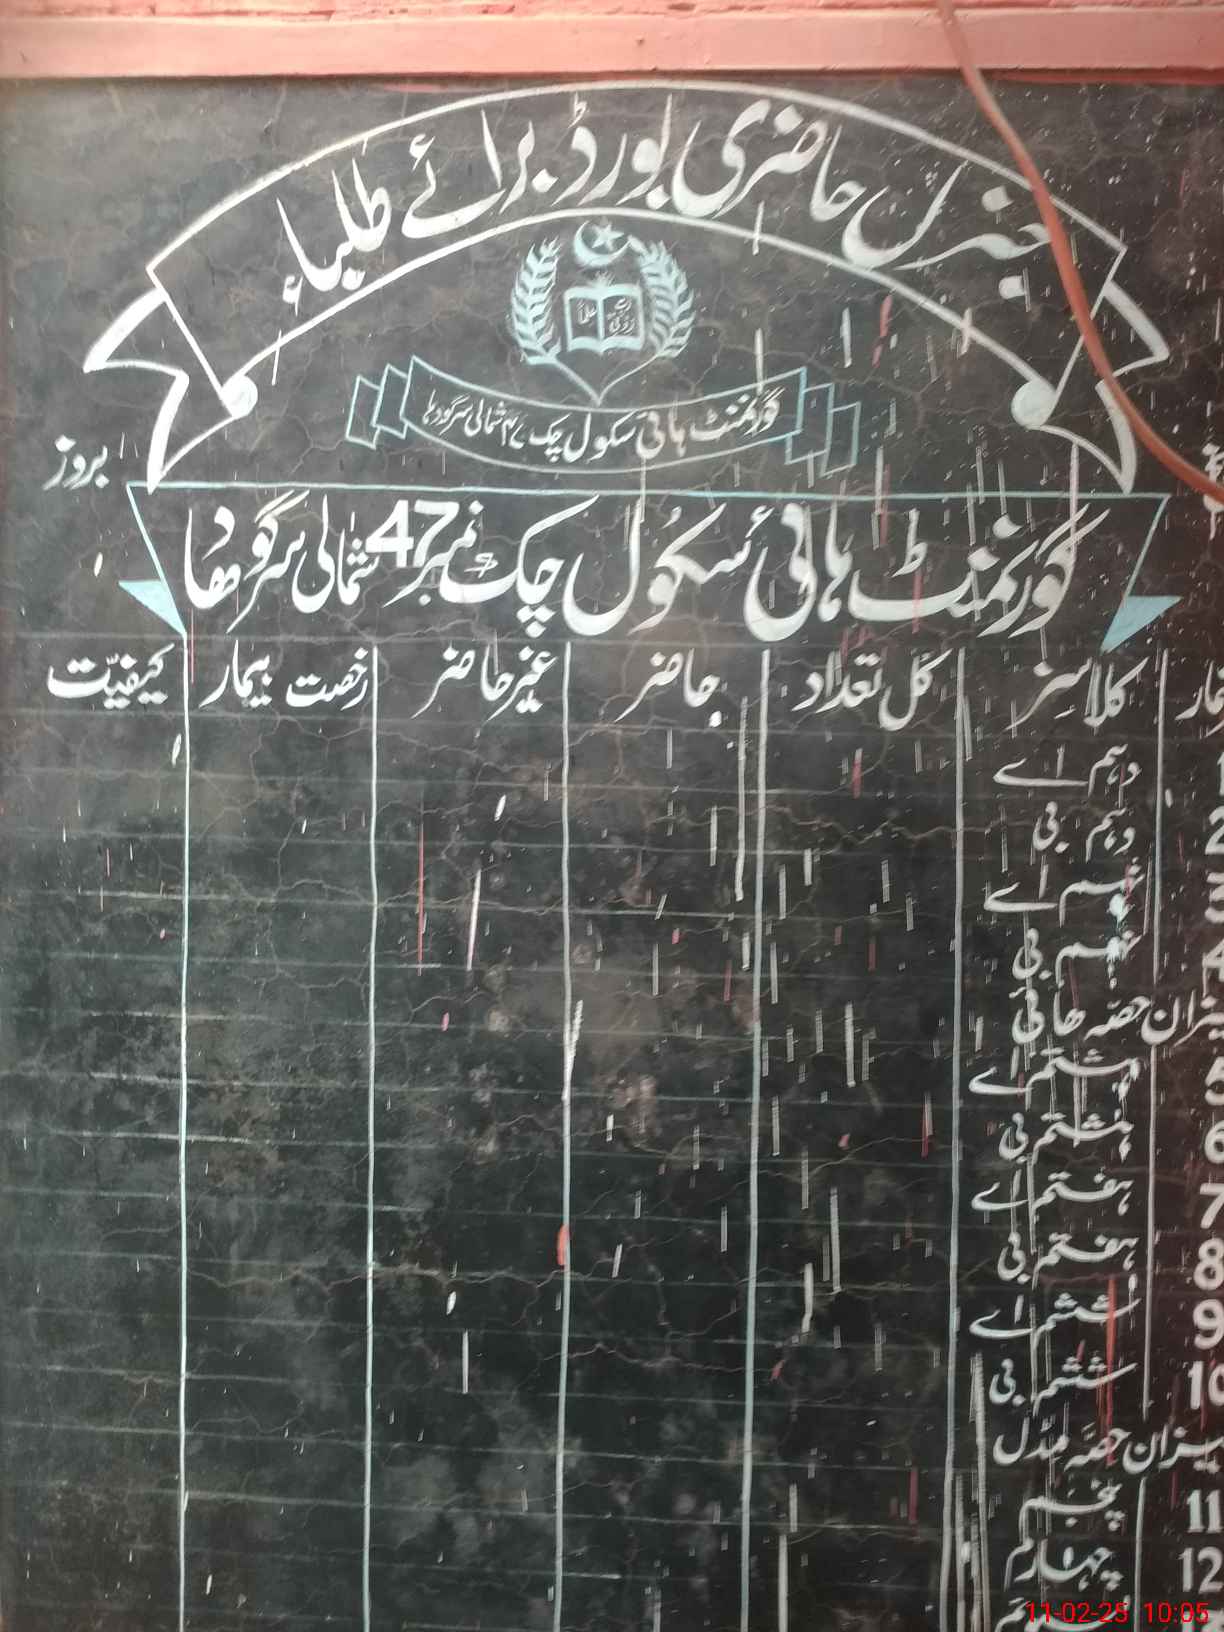 جنرل حاضری بورڈ برائے طلباء
گورنمنٹ ہائی سکول چک ۴۷ شمالی سرگودہا
بروز
گورنمنٹ ہائی سکُول چک نمبر 47 شمالی سرگودھا
کلاسز کل تعداد حاضر غیر حاضر رخصت بیمار کیفیّت
دہم اے
2 دہم بی
3 نہم اے
4 نہم بی
میزان حصّہ ھائی
5 ہشتم اے
6 ہشتم بی
7 ہفتم اے
8 ہفتم بی
9 ششم اے
10 ششم بی
میزان حصّہ مڈل
11 پنجم
12 چہارم
11-02-25 10:05